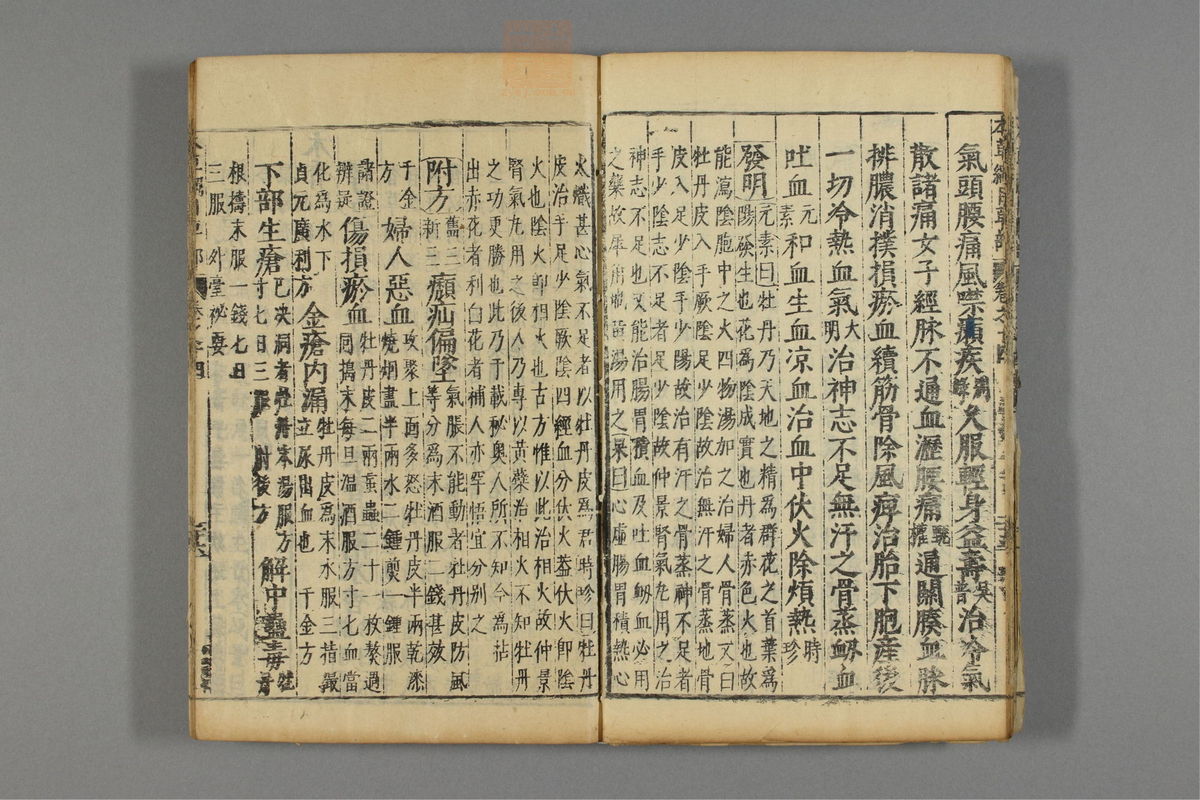 氣頭腰痛風噤癲疾 久服輕身益壽吳普治冷氣
散諸痛女子經脉不通血瀝腰痛甄權通關腠血脉
排膿消撲損瘀血續筋骨除風痺治胎下胞產後
一切冷熱血氣大明治神志不足無汗之骨蒸衂血
吐血元素和血生血凉血治血中伏火除煩熱時珍
發明元素曰牡丹乃天地之精爲群花之首葉爲
陽發生也花爲陰成實也丹者赤色火也故
能瀉陰胞中之火四物湯加之治婦人骨蒸又曰
牡丹皮入手厥陰足少陰故治無汗之骨蒸地骨
皮入足少陰手少陽故治有汗之骨蒸神不足者
手少陰志不足者足少陰故仲景腎氣丸用之治
神志不足也又能治腸胃積血及吐血衂血必用
之藥故犀角地黃湯用之杲曰心虛腸胃積熱心
火熾甚心氣不足者以牡丹皮爲君時珍曰牡丹
皮治手足少陰厥陰四經血分伏火葢伏火卽陰
火也陰火卽相火也古方惟以此治相火故仲景
腎氣丸用之後人乃專以黃蘗治相火不知牡丹
之功更勝也此乃千載秘奥人所不知今爲拈
出赤花者利白花者補人亦罕悟宜分别之
附方舊三新三癲疝偏墜氣脹不能動者牡丹皮防風等分爲末酒服二錢甚效
千金方婦人惡血攻聚上面多怒牡丹皮半兩乾漆燒烟盡半兩水二鍾煎一鍾服
諸證辨疑傷損瘀血牡丹皮二兩䖟蟲二十一枚熬過同搗末每旦温酒服方寸匕血當
化爲水下貞元廣利方金瘡内漏牡丹皮爲末水服三指撮立尿出血也千金方
下部生瘡已决洞者牡丹末湯服方寸匕日三服肘後方解中蠱毒牡丹
根擣末服一錢匕日三服外臺秘要